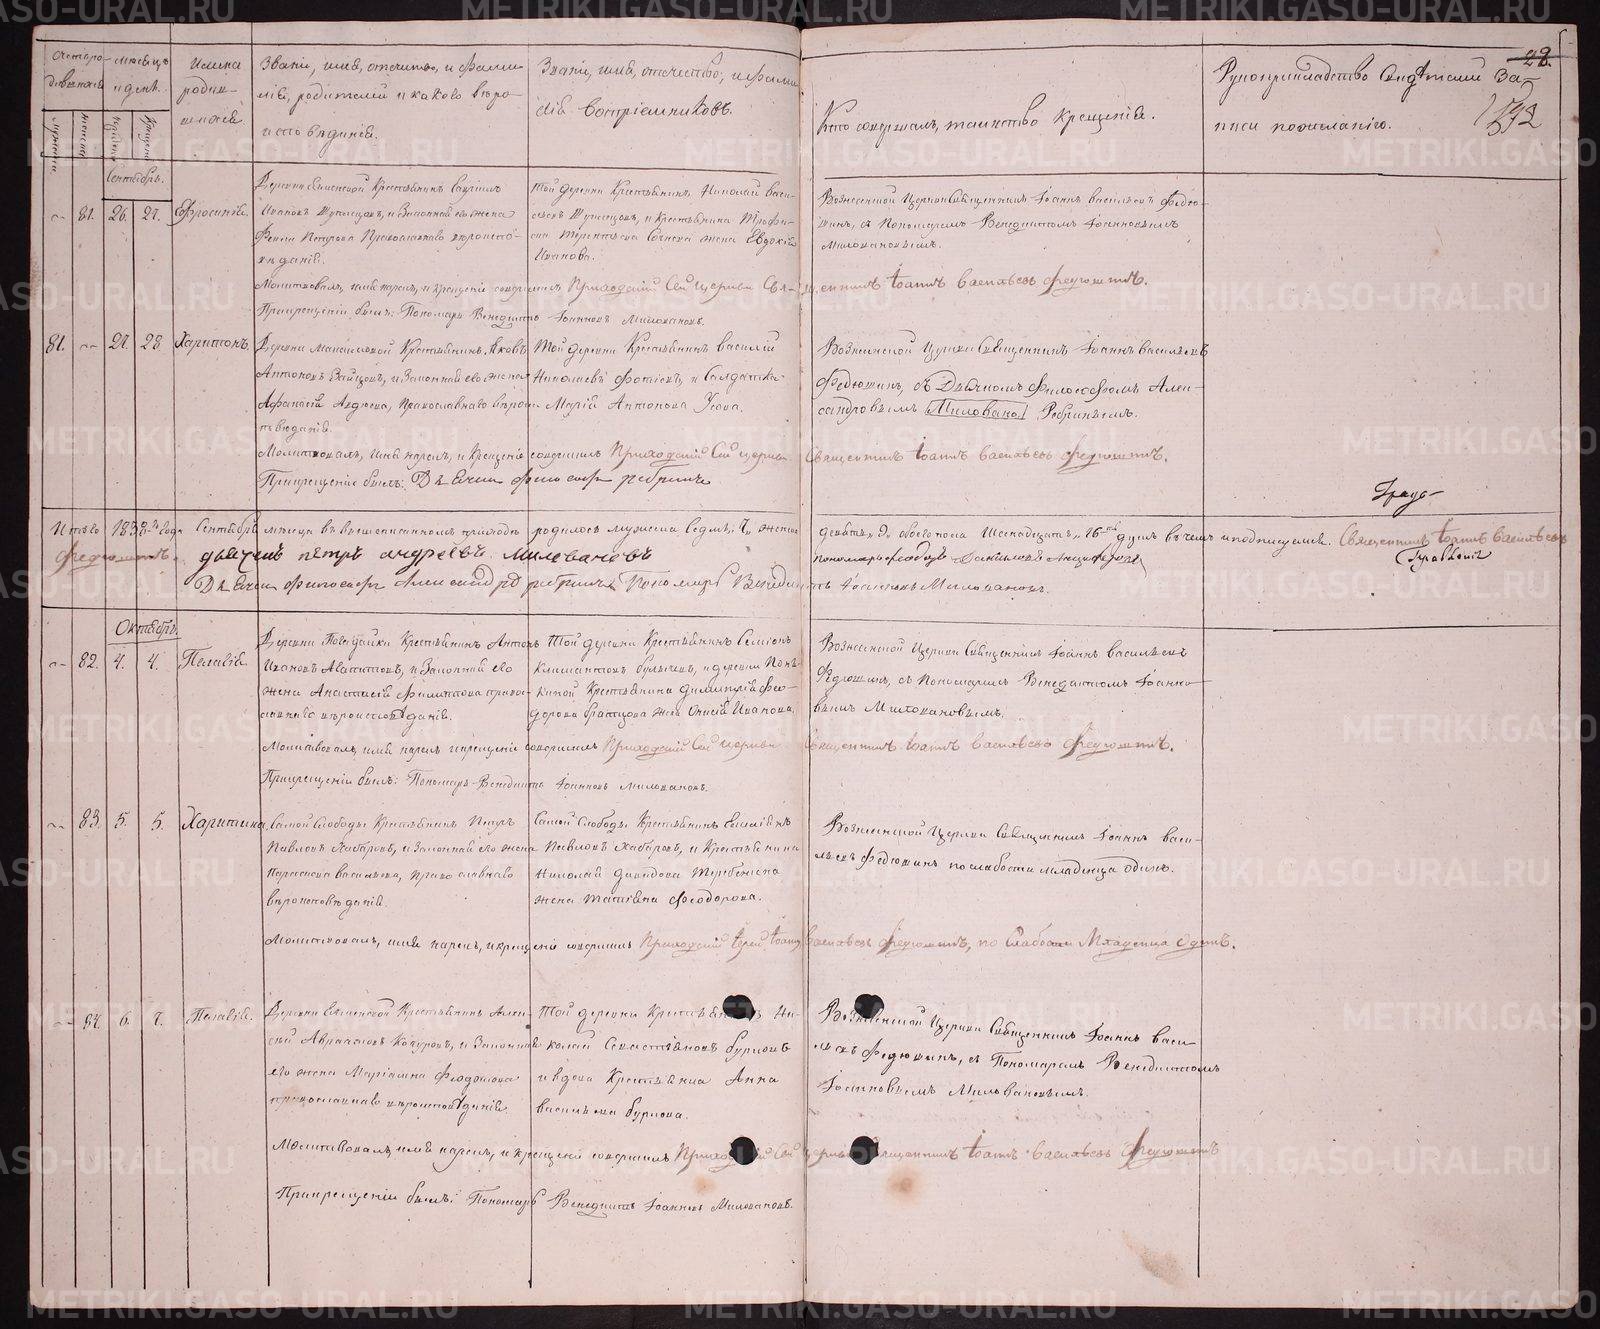 METRIKI.GASO-URAL.RU
28.
Счетъ ро-
дившихся
мѣсяцъ
и день.
Имена
родив-
шихся.
Званіе, имя, отчество, и фами-
лія, родителей и какого вѣро-
исповѣданія.
Званіе, имя, отчество, и фами
лія воспріемниковъ.
Кто совершалъ таинство крещенія.
Рукоприкладство свидѣтелей за-
писи по желанію.
Сентябрь.
81. 26. 27. Ефросинія.
Деревни Крестьянинъ Гавріилъ
Ивановъ и Законная его жена
Петрова Православнаго вѣроиспо-
вѣданія.
Той деревни Крестьянинъ Николай Васи-
жена Евдокія
Иванова.
Вознесенской Церкви Священникъ Іоаннъ Васильевъ Федю-
шинъ, съ Пономаремъ Венедиктомъ Іоанновымъ
Миловановымъ.
Молитвовалъ, имя нарекъ, и крещеніе совершилъ Приходскій Сей церкви Священникъ Іоаннъ Васильевъ Федюшинъ.
При крещеніи былъ: Пономарь Венедиктъ Іоанновъ Миловановъ.
81. 27. 28. Харитонъ.
Деревни Максимовой Крестьянинъ Яковъ
Антоновъ Зайцовъ, и Законная его жена
Афанасія Авдѣева, Православнаго вѣроис
повѣданія.
Той деревни Крестьянинъ Василій
Николаевъ Фотіевъ, и Солдатка
Марія Антонова Усова.
Вознесенской Церкви Священникъ Іоаннъ Васильевъ
Федюшинъ, съ Дьячкомъ Философомъ Алек-
сандровымъ Милован Ребринымъ.
Молитвовалъ, имя нарекъ, и крещеніе совершилъ Приходскій Сей церкви Священникъ Іоаннъ Васильевъ Федюшинъ.
При крещеніи былъ: Дьячекъ Философъ Ребринъ
Итого 1838-го года Сентябрѣ мѣсяцѣ въ вышеписанномъ приходѣ родилось мужеска седмь, 7, женска
девять, 9, обоего пола Шеснадцать, 16ть душъ въ чемъ и подписуемся. Священникъ Іоаннъ Васильевъ
Федюшинъ. дьячекъ петръ андреевъ миловановъ
пономарь Феодоръ
Дьячекъ Философъ Александровъ Ребринъ, Пономарь Венедиктъ Іоанновъ Миловановъ.
Октябрь.
82. 4. 4. Пелагія.
Деревни Крестьянинъ Антонъ
Ивановъ и Законная его
жена Анастасія Филиппова право-
славнаго вѣроисповѣданія.
Той деревни Крестьянинъ Семіонъ
и деревни
Крестьянина Димитрія Фео-
дорова жена Онисія Иванова.
Вознесенской Церкви Священникъ Іоаннъ Васильевъ
Федюшинъ, съ Пономаремъ Венедиктомъ Іоанно-
вымъ Миловановымъ.
Молитвовалъ, имя нарекъ и крещеніе совершилъ Приходскій Сей церкви Священникъ Іоаннъ Васильевъ Федюшинъ.
При крещеніи былъ: Пономарь Венедиктъ Іоанновъ Миловановъ.
83. 5. 5. Харитина.
Самой Слободы Крестьянинъ Петръ
Павловъ Хабаровъ, и Законная его жена
Параскева Васильева, Православнаго
вѣроисповѣданія.
Самой Слободы Крестьянинъ
Павловъ Хабаровъ, и Крестьянина
Николая Давидова
жена Татіяна Феодорова.
Вознесенской Церкви Священникъ Іоаннъ Васи-
льевъ Федюшинъ по слабости младенца одинъ.
Молитвовалъ, имя нарекъ, и крещеніе совершилъ Приходскій Іерей Іоаннъ Васильевъ Федюшинъ, по Слабости Младенца Одинъ.
84. 6. 7. Пелагія.
Деревни Крестьянинъ Алек-
сѣй и Законная
его жена Маріамна
православнаго вѣроисповѣданія.
Той деревни Крестьянинъ Ни-
колай Севастьяновъ Бурцовъ
и вдова Крестьянка Анна
Васильева Бурцова.
Вознесенской Церкви Священникъ Іоаннъ Васи
льевъ Федюшинъ, съ Пономаремъ Венедиктомъ
Іоанновымъ Миловановымъ.
Молитвовалъ, имя нарекъ, и крещеніе совершилъ Приходскій Сей церкви Священникъ Іоаннъ Васильевъ Федюшинъ
При крещеніи былъ: Пономарь Венедиктъ Іоанновъ Миловановъ.